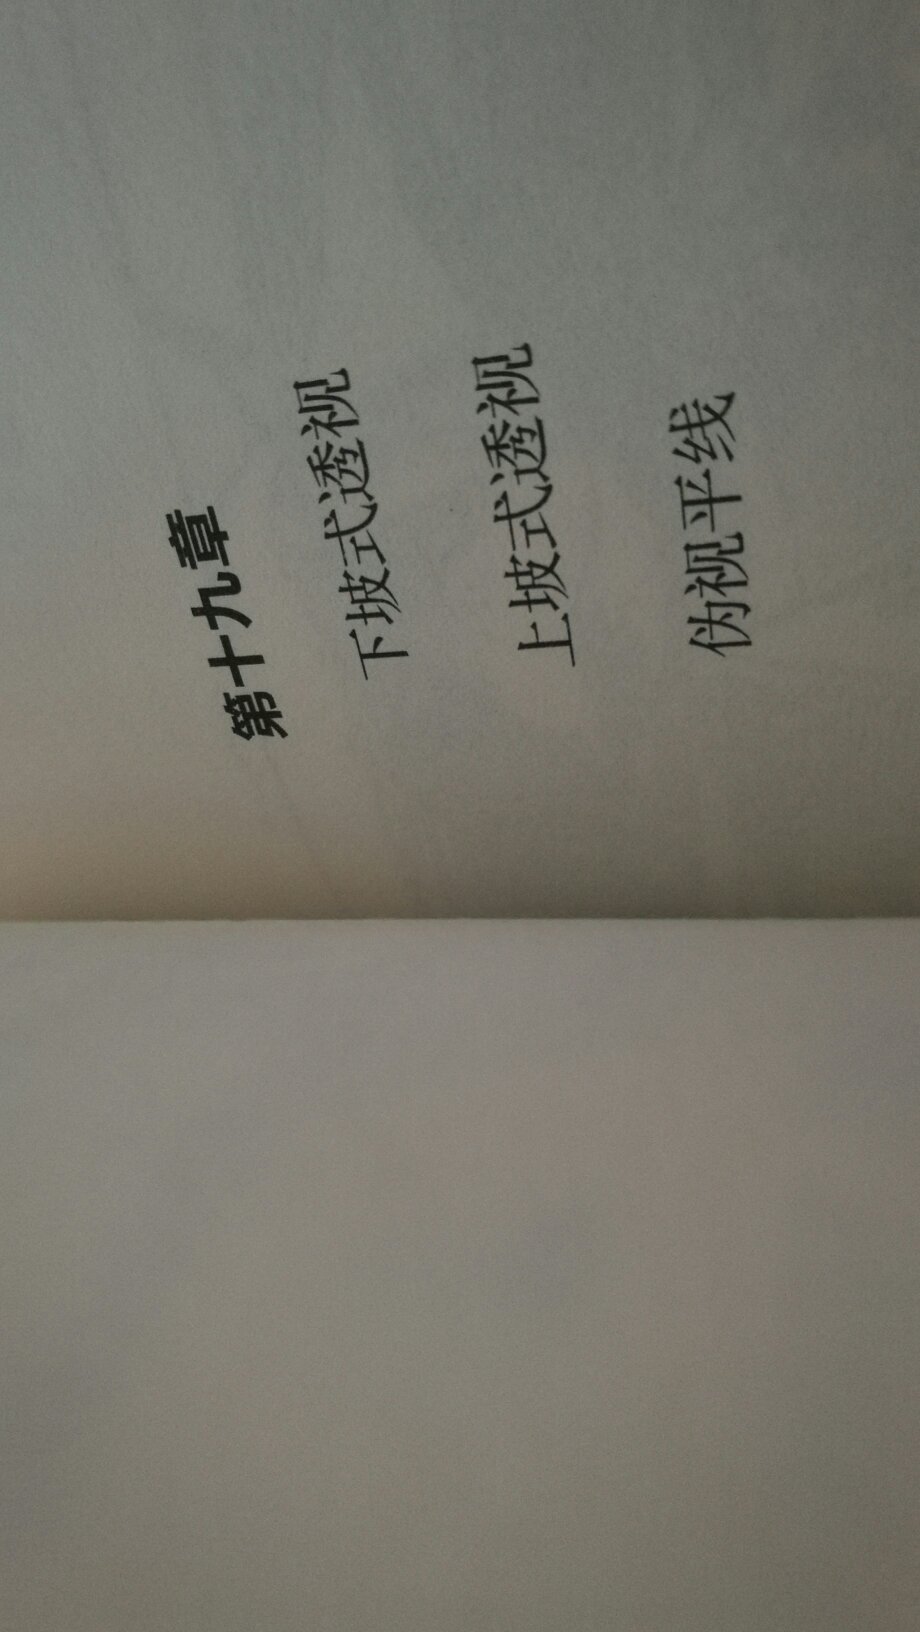 第十九章
下坡式透视
上坡式透视
伪视平线